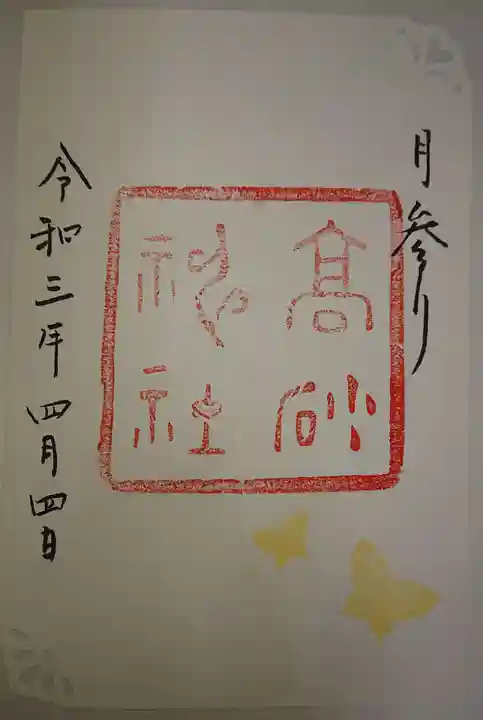 月参り
高砂
神社
令和三年四月四日